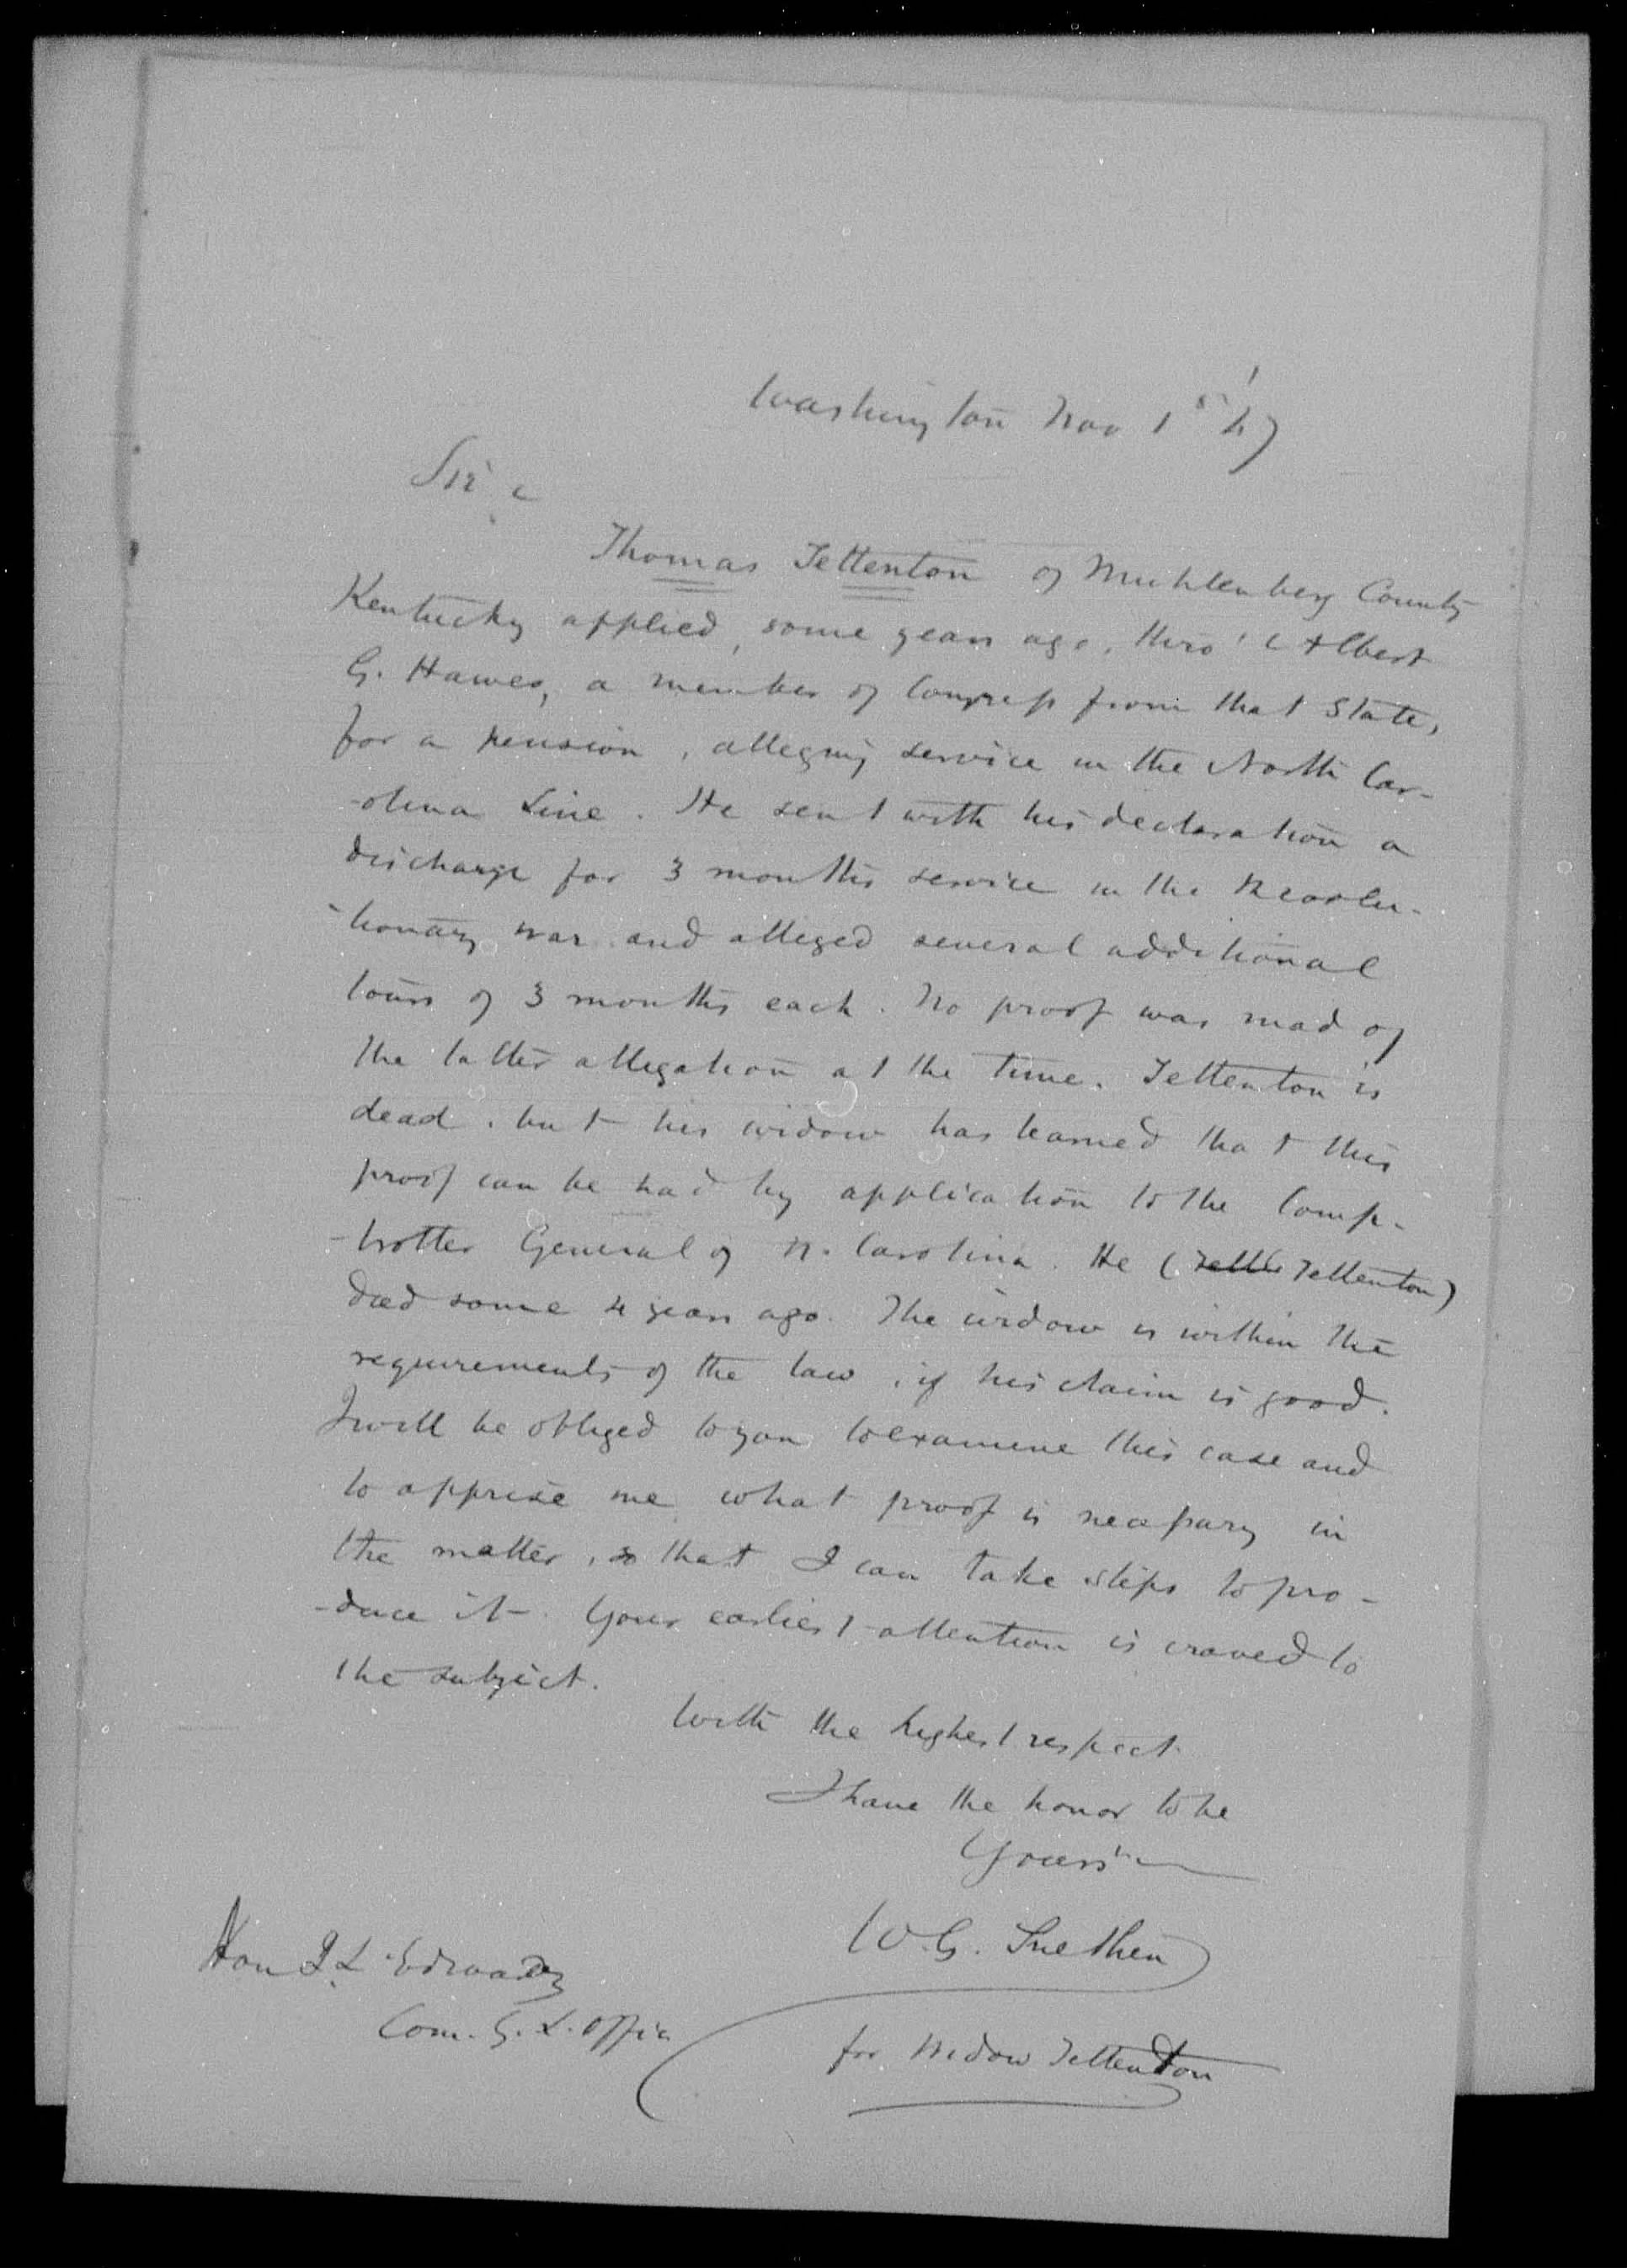 Washington Nov 1st '47
Sir,
Thomas Tettenton of Muhlenberg County
Kentucky applied, some years ago, thro' Albert
G. Hawes, a member of Congress from that State,
for a pension, alleging service in the North Car-
-olina Line. He sent with his declaration a
discharge for 3 months service in the Revolu-
-tionary war and alleged several additional
tours of 3 months each. No proof was mad of
the latter allegation at the time. Tettenton is
dead, but his widow has learned that this
proof can be had by application to the Comp-
-troller General of N. Carolina. He (Tettenton)
died some 4 years ago. The widow is within the
requirements of the law, if his claim is good.
I will be obliged to you to examine this case and
to apprise me what proof is necessary in
the matter, so that I can take steps to pro-
-duce it. Your earliest attention is craved to
the subject.
With the highest respect
I have the honor to be
Yours
W. G. Snethen
for Widow Tettenton
Hon J L Edwards
Com. G. L. Office